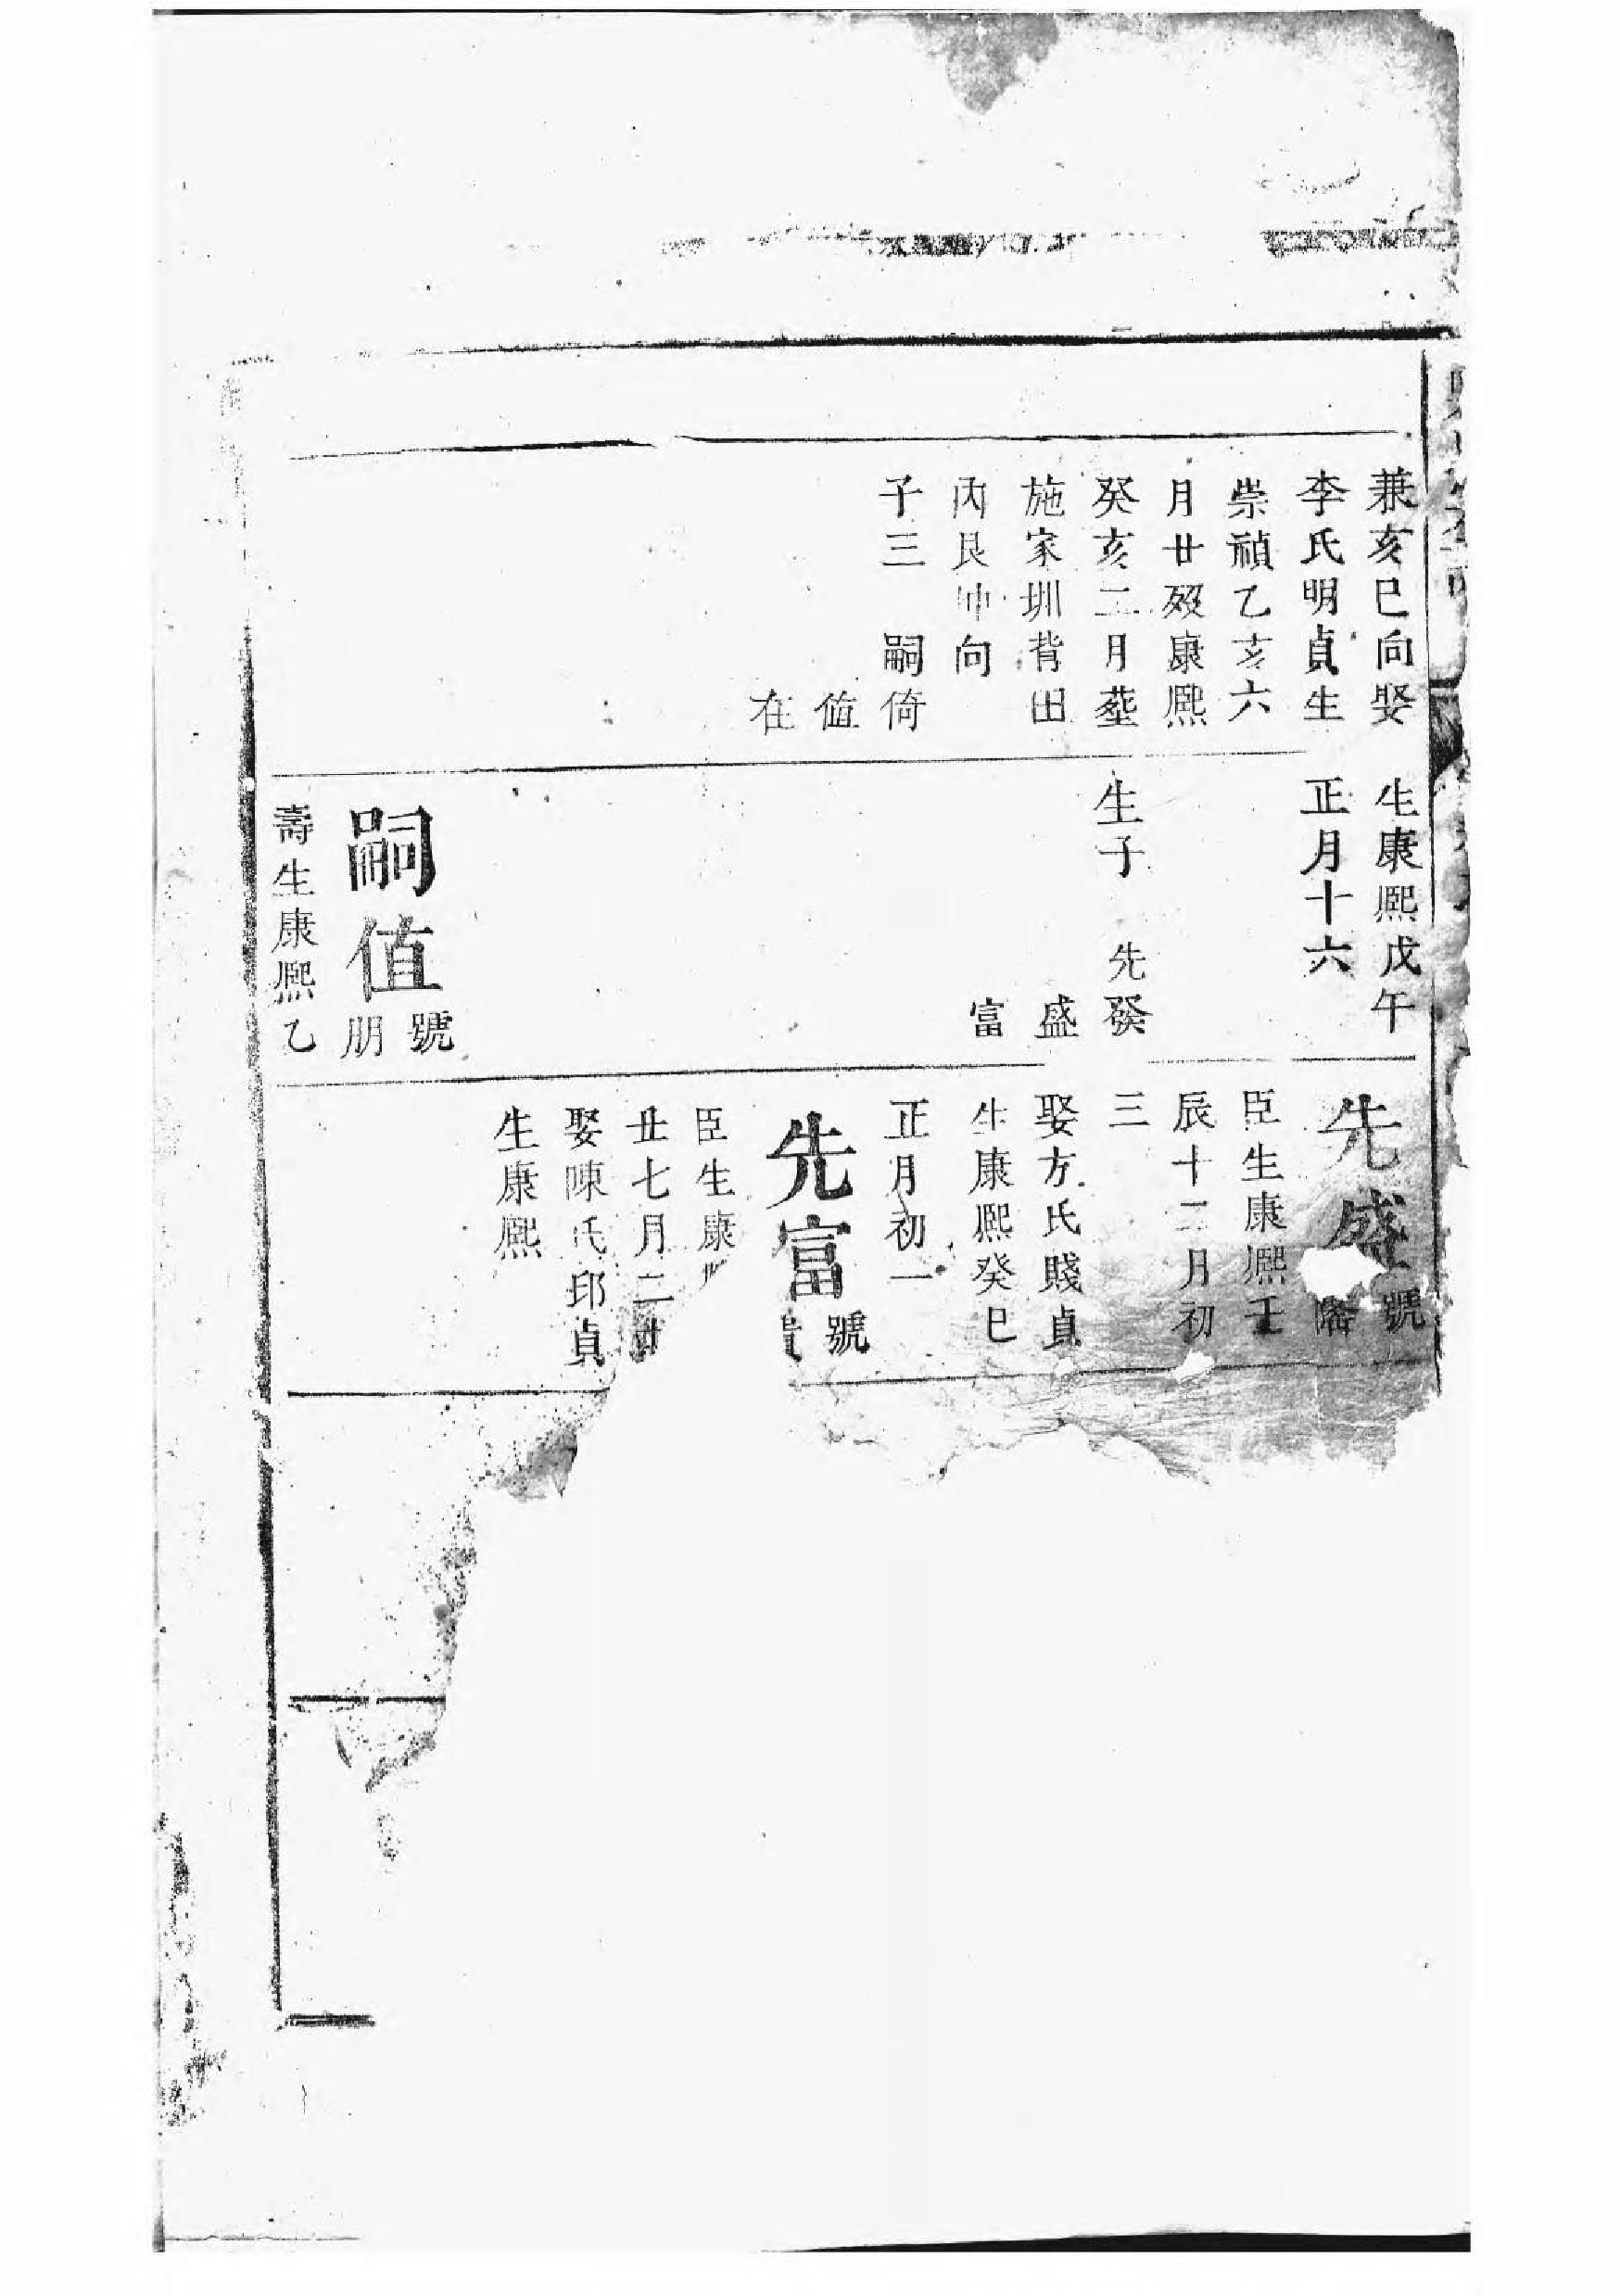 兼亥巳向娶
李氏明貞生
崇禎乙亥六
月廿歿康熈
癸亥二月塟
施家圳背田
內艮坤向
子三　嗣倚
值
在
生康熈戊午
正月十六
生子　先發
盛
富
嗣值號
朋
壽生康熈乙
先盛號
臣生康熈壬
辰十二月初
三
娶方氏賤貞
生康熈癸巳
正月初一
先富號
臣生康
丗七月二
娶陳氏邱貞
生康熈